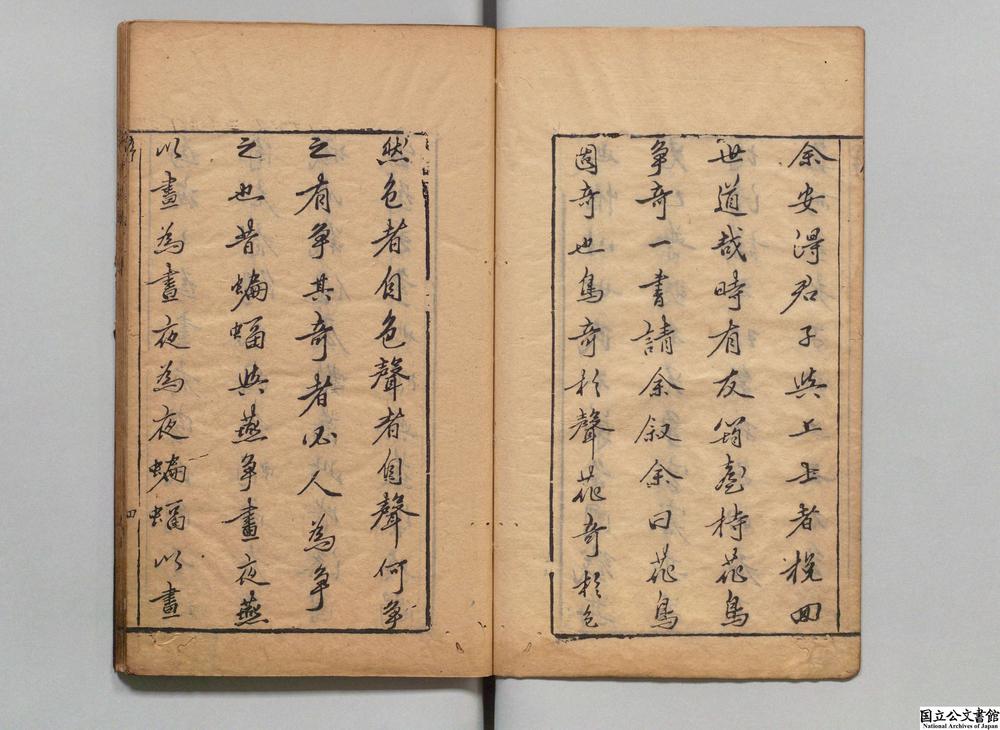 余安得君子與上上者挽回
世道哉時有友筠臺持花鳥
爭奇一書請余叙余曰花鳥
固奇也鳥奇於聲花奇於色
然色者自色聲者自聲何爭
之有爭其奇者必人為爭
之也昔蝙蝠與燕爭晝夜燕
以晝為晝夜為夜蝙蝠以晝
序
四
国立公文書館
National Archives of Japan